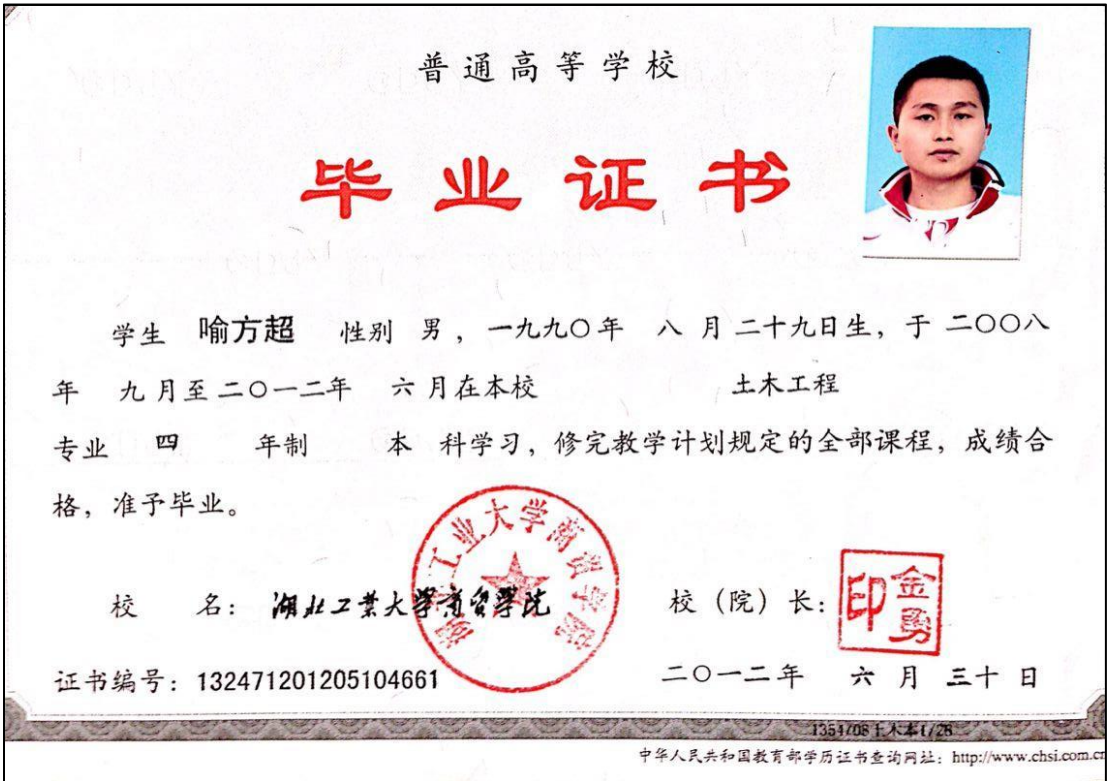 普通高等学校
毕业证书
学生 喻方超 性别 男，一九九〇年 八 月二十九日生，于二〇〇八
年 九月至二〇一二年 六月在本校 土木工程
专业 四 年制 本 科学习，修完教学计划规定的全部课程，成绩合
格，准予毕业。
湖北工业大学商贸学院
校 名：湖北工業大學商貿學院 校（院）长：金勇印
证书编号：132471201205104661 二〇一二年 六 月 三十 日
1354/08土木本1/28
中华人民共和国教育部学历证书查询网址：http://www.chsi.com.cn